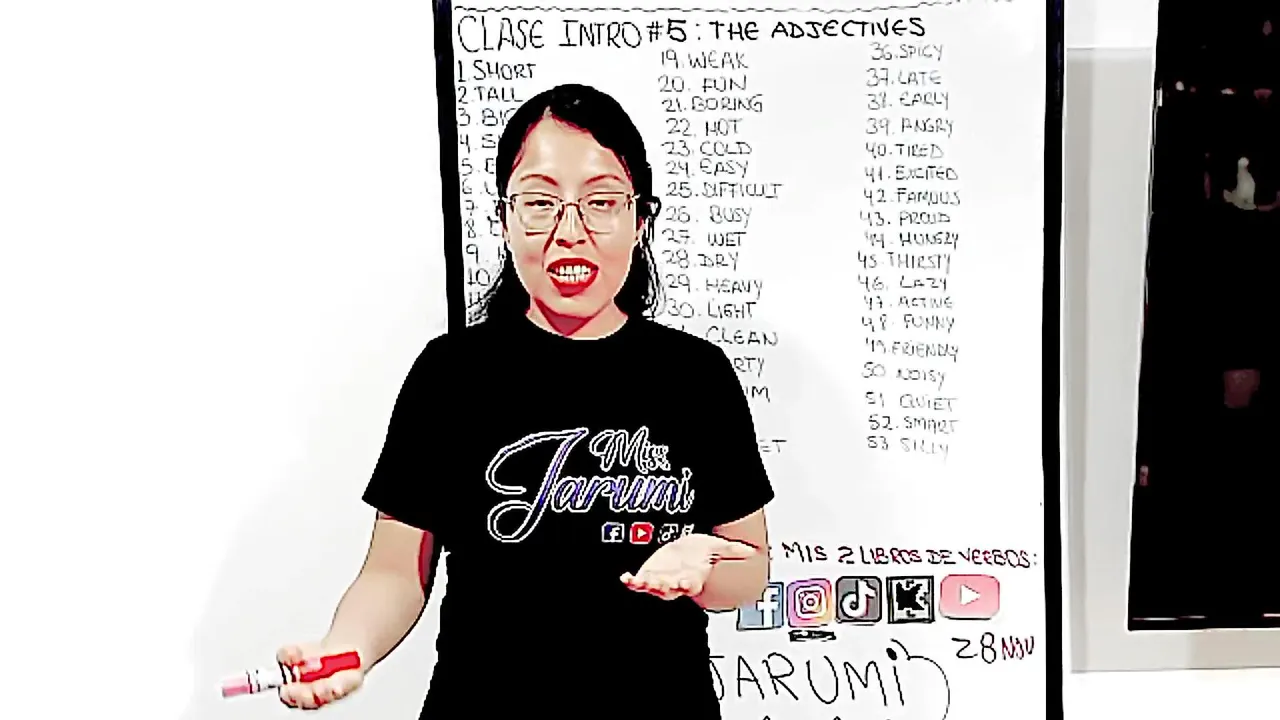 CLASE INTRO #5: THE ADJECTIVES
1. SHORT
2. TALL
3.
4.
5.
6.
7.
8.
9.
10
19. WEAK
20. FUN
21. BORING
22. HOT
23. COLD
24. EASY
25. DIFFICULT
26. BUSY
27. WET
28. DRY
29. HEAVY
30. LIGHT
CLEAN
36. SPICY
37. LATE
38. EARLY
39. ANGRY
40. TIRED
41. EXCITED
42. FAMOUS
43. PROUD
44. HUNGRY
45. THIRSTY
46. LAZY
47. ACTIVE
48. FUNNY
49. FRIENDLY
50 NOISY
51 QUIET
52. SMART
53 SILLY
Miss
Jarumi
MIS 2 LIBROS DE VERBOS:
28
JARUMI